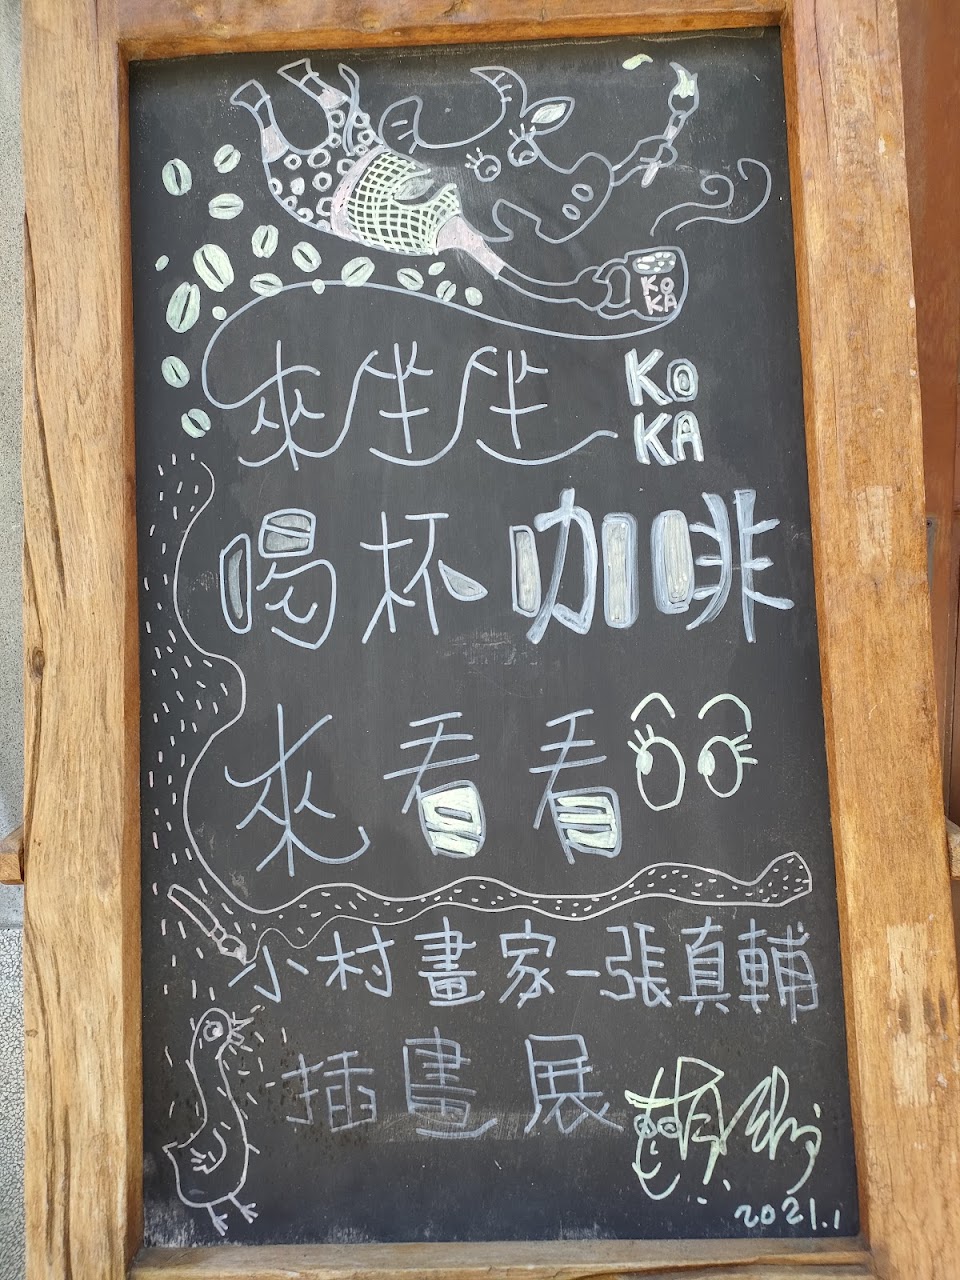 KO
KA
來坐坐 KO
KA
喝杯咖啡
來看看
小村畫家-張真輔
插畫展
2021.1